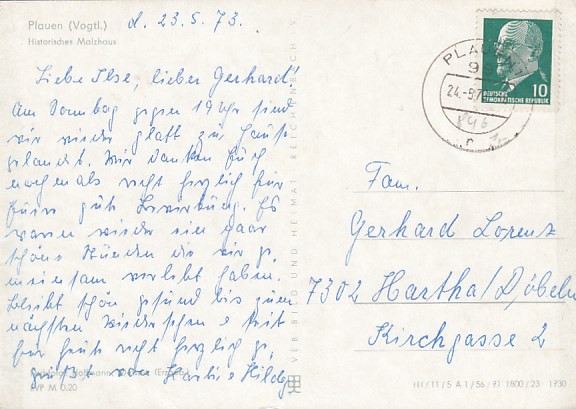 Plauen (Vogtl.)
Historisches Malzhaus
d. 23.5.73.
Liebe Ilse, lieber Gerhard!
Am Sonntag gegen 19 Uhr sind
wir wieder glatt zu Hause
gelandet. Wir danken Euch
nochmals recht herzlich für
Eure gute Bewirtung. Es
waren wieder ein paar
schöne Stunden die wir ge,
meinsam verlebt haben.
Bleibt schön gesund bis zum
nächsten Wiedersehen u seit
für heute recht herzlich ge,
grüßt von Hildg
EVP M 0.20
VEB BILD UND HEIMAT REICHENBACH V.
PLAUEN
9
24.-5.7
DEUTSCHE
DEMOKRATISCHE REPUBLIK
10
Fam.
Gerhard Lorenz
7302 Hartha/Döbeln
Kirchgasse 2
1800/23 1730